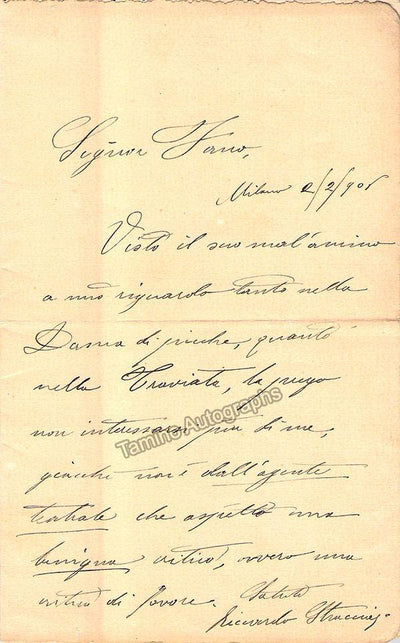 Signor Fano,
Milano 2/2/906
Visto il suo mal'animo
a mio riguardo tanto nella
Dama di picche, quanto
nella Traviata, la prego
non interessarsi più di me,
giacchè non è dall'agente
teatrale che aspetto una
benigna critica, ovvero una
critica di favore.
Saluti
Riccardo Stracciari
Tamino Autographs